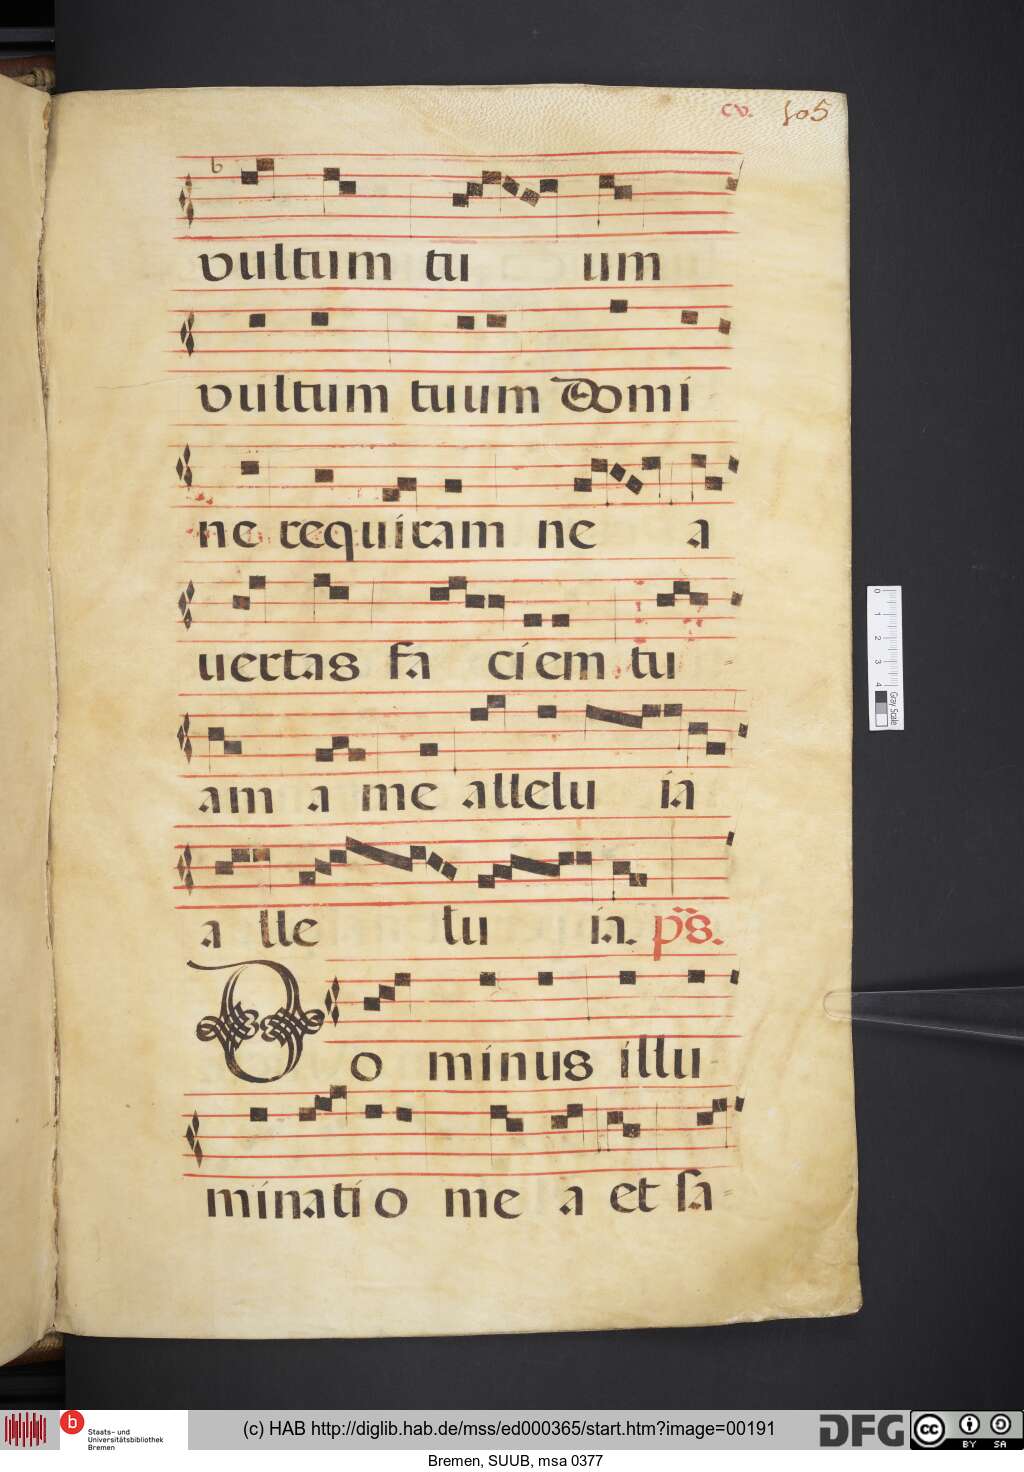 cv. 105
b
vultum tu um
vultum tuum Domi
ne requiram ne a
uertas fa ciem tu =
am a me allelu ia
a lle lu ia. ps.
Do minus illu
minatio me a et sa =
0 1 2 3 4
Gray Scale
b
Staats- und
Universitätsbibliothek
Bremen
(c) HAB http://diglib.hab.de/mss/ed000365/start.htm?image=00191
DFG
cc BY SA
Bremen, SUUB, msa 0377